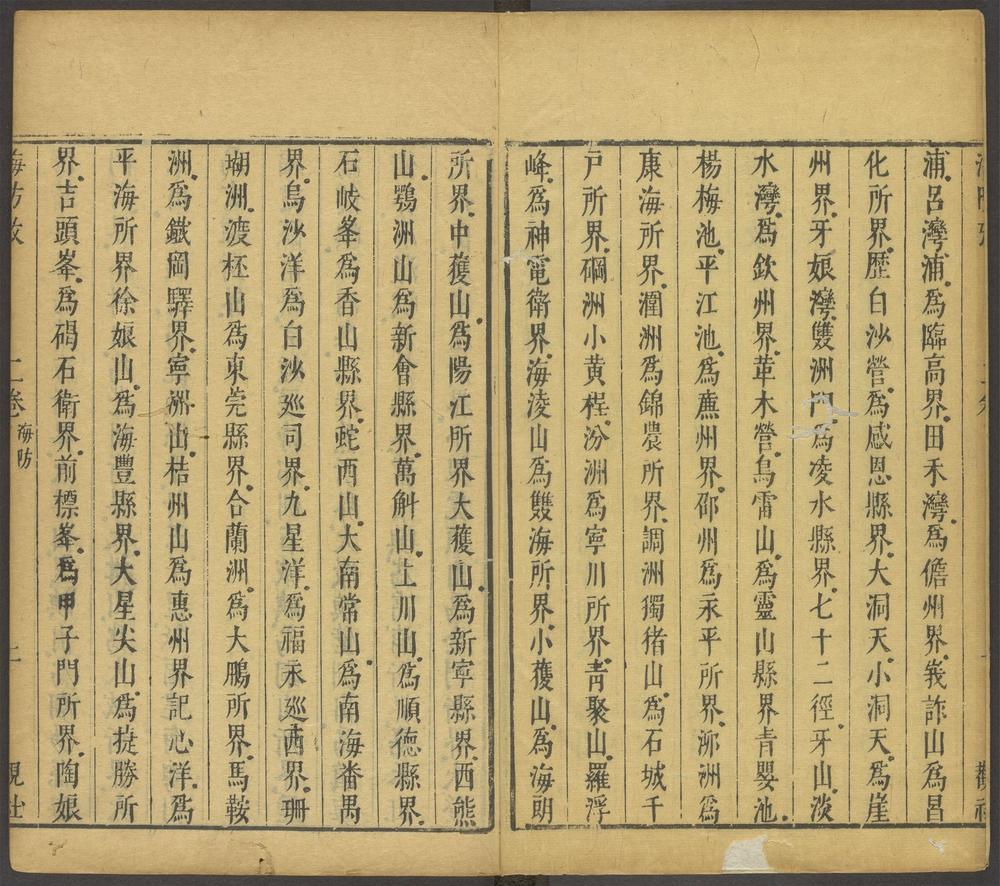 浦呂灣浦爲臨高界田禾灣爲儋州界峩詐山爲昌
化所界歷白沙營爲感恩縣界大洞天小洞天爲崖
州界牙娘灣雙洲門爲凌水縣界七十二徑牙山淡
水灣爲欽州界葦木營烏雷山爲靈山縣界青嬰池
楊梅池平江池爲廉州界邵州爲永平所界泖洲爲
康海所界潿洲爲錦農所界調洲獨豬山爲石城千
戶所界碙洲小黃桯汾洲爲寧川所界青聚山羅浮
峰爲神電衛界海淩山爲雙海所界小蒦山爲海朗
所界中蒦山爲陽江所界大蒦山爲新寧縣界西熊
山鶚洲山爲新會縣界萬斛山上川山爲順德縣界
石岐峯爲香山縣界虵西山大南常山爲南海番禺
界烏沙洋爲白沙巡司界九星洋爲福永巡西界珊
瑚洲渡柸山爲東莞縣界合蘭洲爲大鵬所界馬鞍
洲爲鐵岡驛界寧洲山桔州山爲惠州界記心洋爲
平海所界徐娘山爲海豐縣界大星尖山爲㨗勝所
界吉頭峯爲碣石衛界前標峯爲甲子門所界陶娘
海防攷 二卷 海防 二